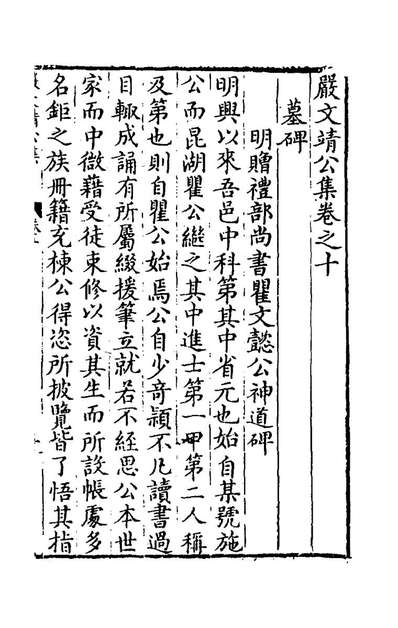 嚴文靖公集卷之十
墓碑
明贈禮部尚書瞿文懿公神道碑
明興以來吾邑中科第其中省元也始自某號施
公而昆湖瞿公繼之其中進士第一甲第二人稱
及第也則自瞿公始焉公自少奇穎不凡讀書過
目輙成誦有所屬綴援筆立就若不經思公本世
家而中微藉受徒束修以資其生而所設帳處多
名鉅之族冊籍充棟公得恣所披覽皆了悟其指